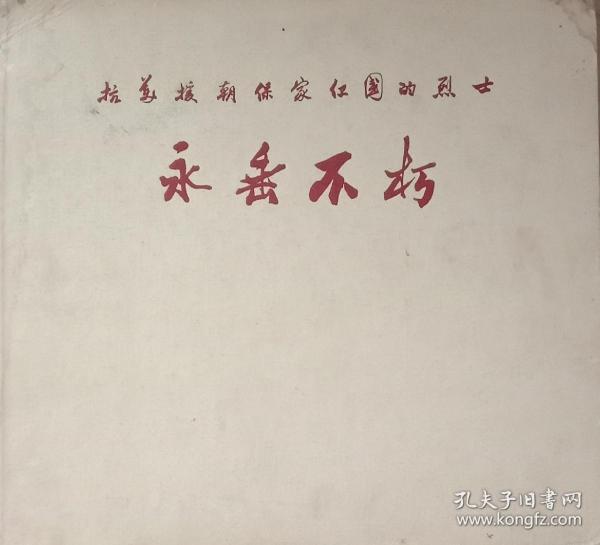 抗美援朝保家卫國的烈士
永垂不朽
孔夫子旧書网
www.kongfz.com